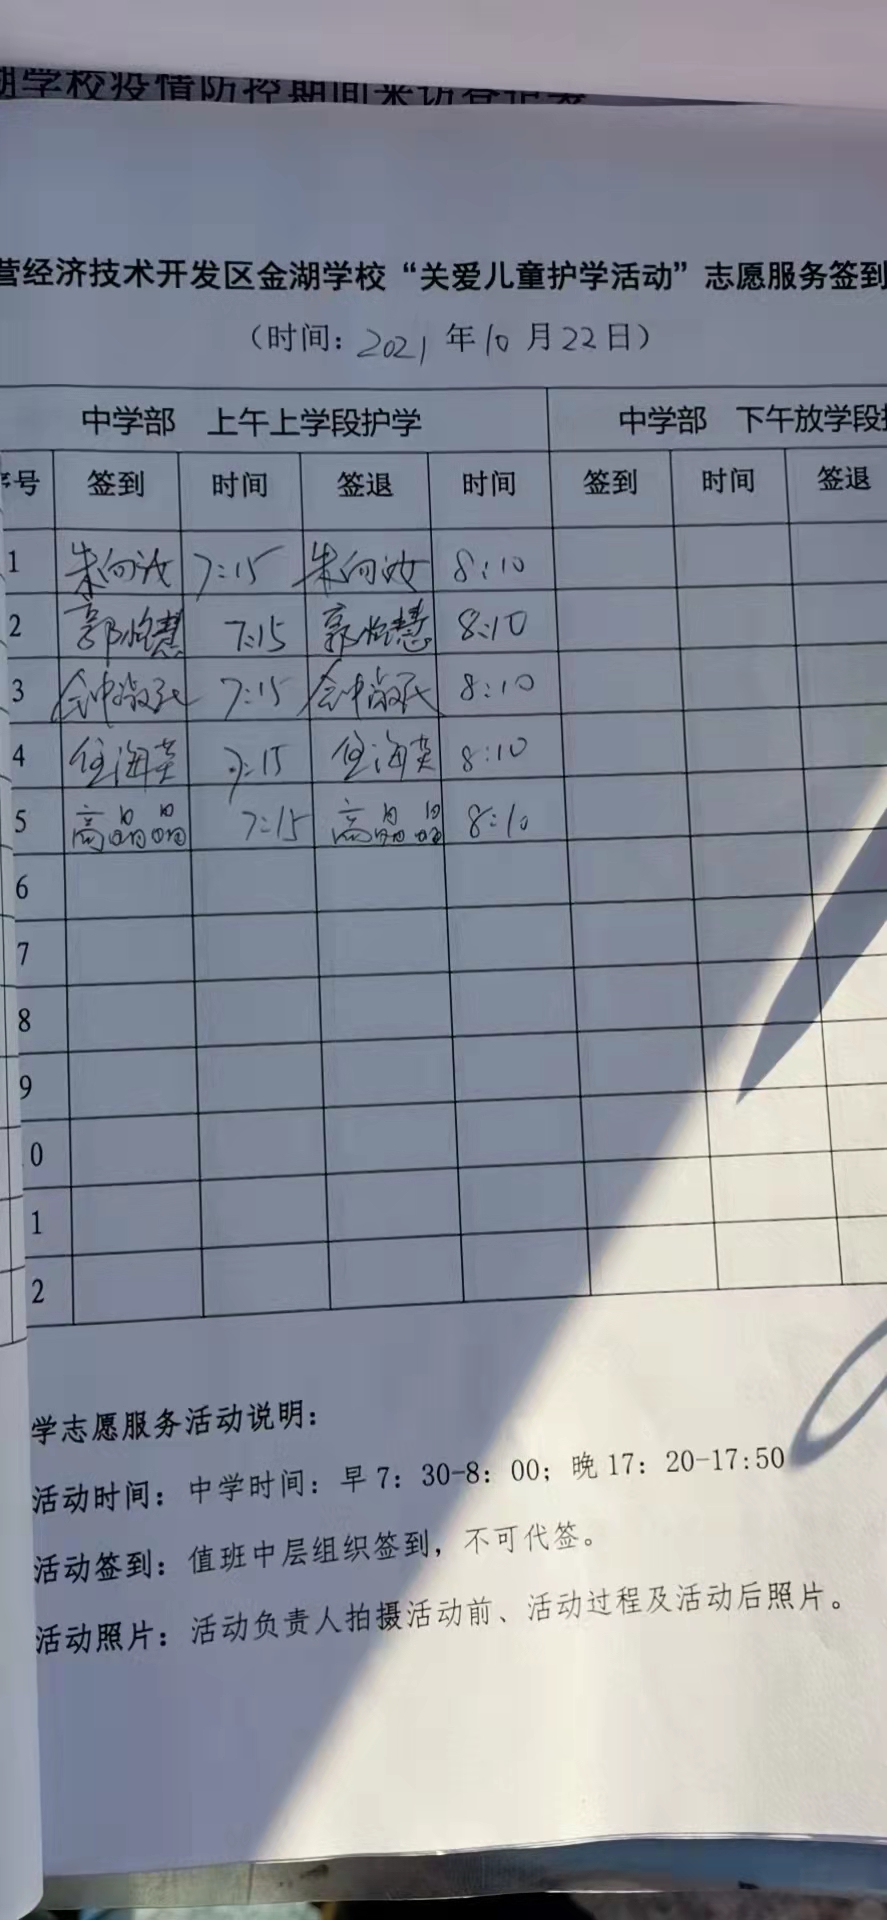 湖学校疫情防控期间来访登记表
营经济技术开发区金湖学校“关爱儿童护学活动”志愿服务签到
（时间：2021年10月22日）
中学部 上午上学段护学 中学部 下午放学段护
序号 签到 时间 签退 时间 签到 时间 签退
1 7:15 8:10
2 郭怡慧 7:15 郭怡慧 8:10
3 7:15 8:10
4 任海英 7:15 任海英 8:10
5 高晶晶 7:15 高晶晶 8:10
6
7
8
9
0
1
2
学志愿服务活动说明：
活动时间：中学时间：早7：30-8：00；晚17：20-17:50
活动签到：值班中层组织签到，不可代签。
活动照片：活动负责人拍摄活动前、活动过程及活动后照片。